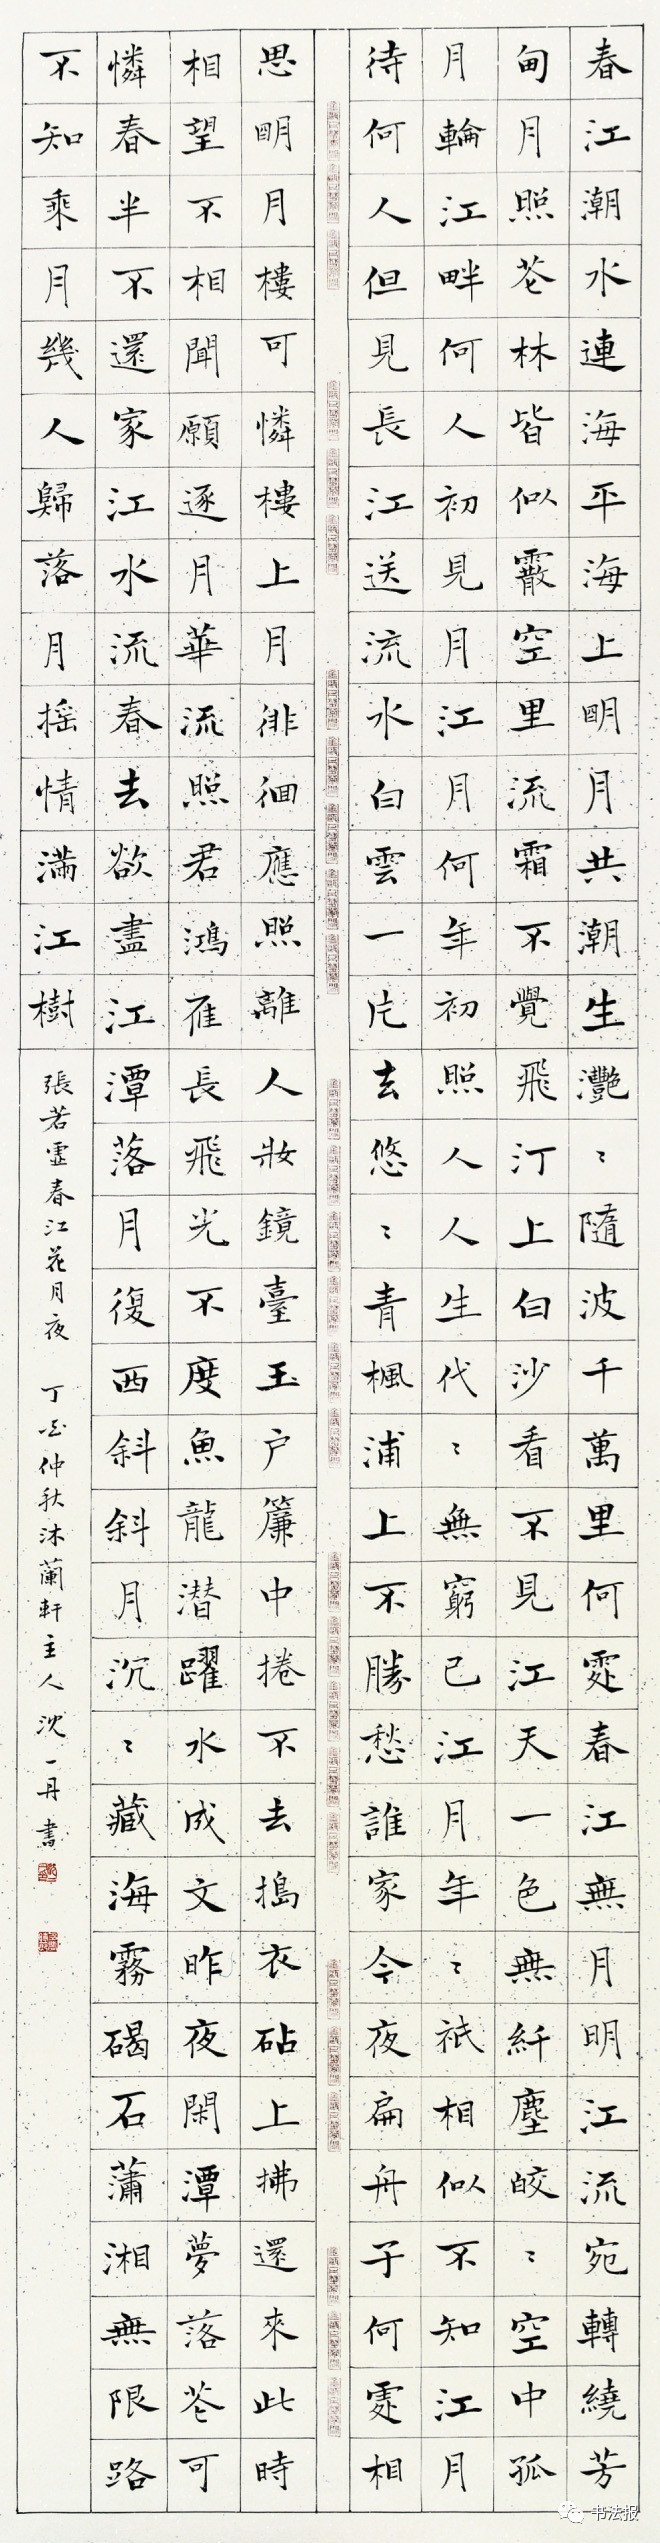 春江潮水連海平海上明月共潮生灧〻隨波千萬里何處春江無月明江流宛轉繞芳
甸月照花林皆似霰空里流霜不覺飛汀上白沙看不見江天一色無纖塵皎〻空中孤
月輪江畔何人初見月江月何年初照人人生代〻無窮已江月年〻祇相似不知江月
待何人但見長江送流水白雲一片去悠〻青楓浦上不勝愁誰家今夜扁舟子何處相
思明月樓可憐樓上月徘徊應照離人妝鏡臺玉户簾中捲不去搗衣砧上拂還來此時
相望不相聞願逐月華流照君鴻雁長飛光不度魚龍潛躍水成文昨夜閑潭夢落花可
憐春半不還家江水流春去欲盡江潭落月復西斜斜月沉〻藏海霧碣石瀟湘無限路
不知乘月幾人歸落月摇情滿江樹
張若虛春江花月夜 丁酉仲秋沐蘭軒主人沈一丹書
书法报